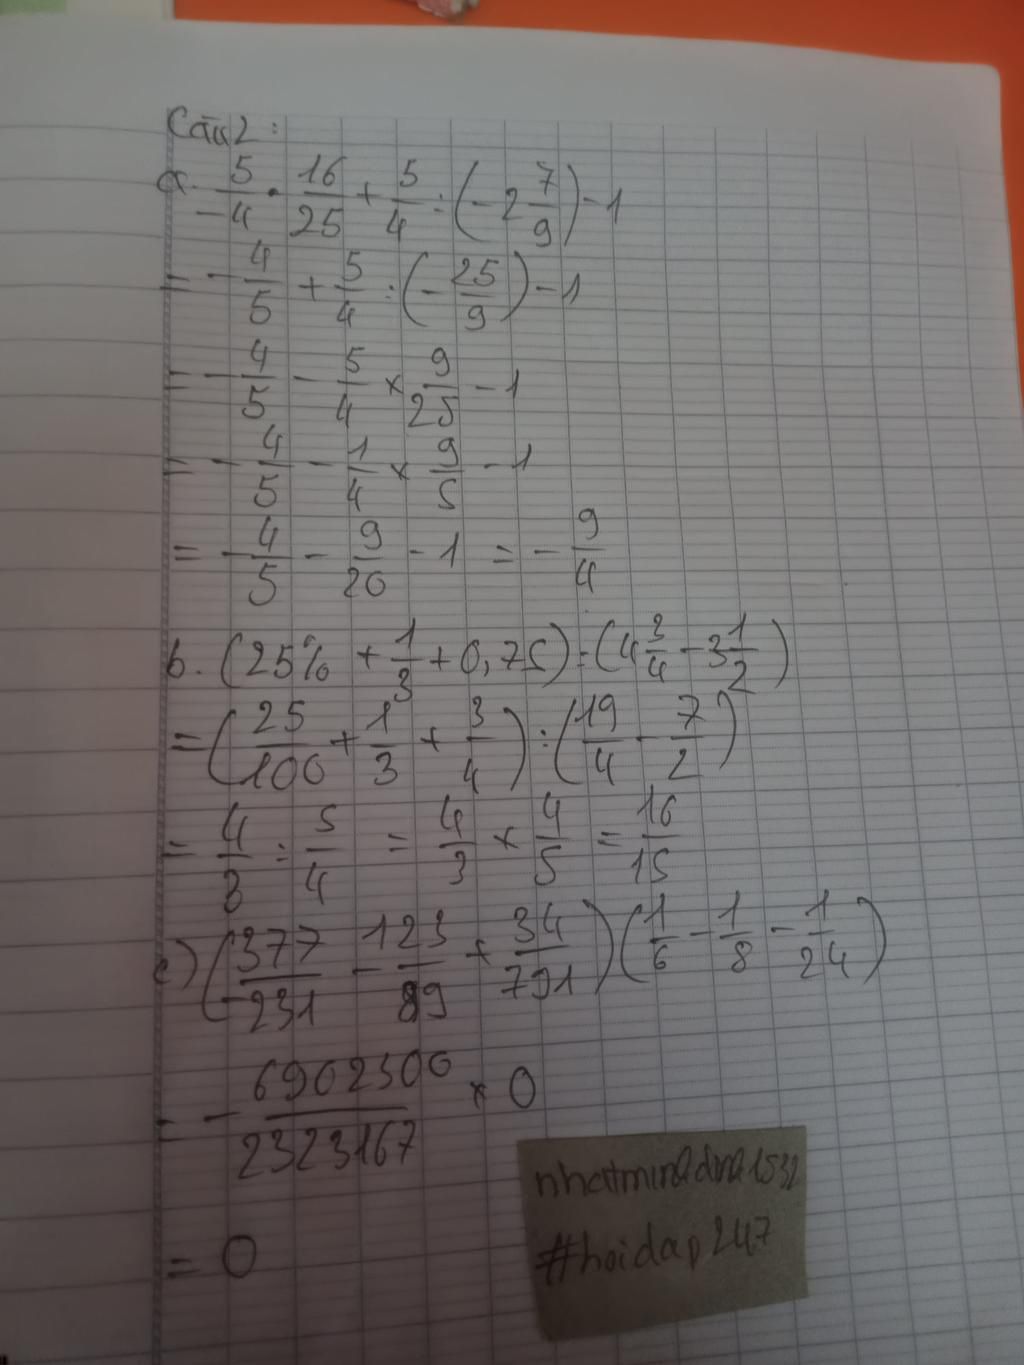 Câu 2:
a. 5/-4 · 16/25 + 5/4 : (-2 7/9) - 1
= - 4/5 + 5/4 : (- 25/9) - 1
= - 4/5 - 5/4 × 9/25 - 1
= - 4/5 - 1/4 × 9/5 - 1
= - 4/5 - 9/20 - 1 = - 9/4
b. (25% + 1/3 + 0,75) : (4 3/4 - 3 1/2)
= (25/100 + 1/3 + 3/4) : (19/4 - 7/2)
= 4/3 : 5/4 = 4/3 × 4/5 = 16/15
c) (377/-231 - 123/89 + 34/791) (1/6 - 1/8 - 1/24)
= - 6902300/2323167 × 0
= 0
#hoidap247